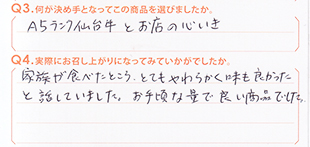 Q3.何が決め手となってこの商品を選びましたか。
A5ランク仙台牛とお店の心いき
Q4.実際にお召し上がりになってみていかがでしたか。
家族が食べたところ、とてもやわらかく味も良かった
と話していました。お手頃な量で良い商品でした。